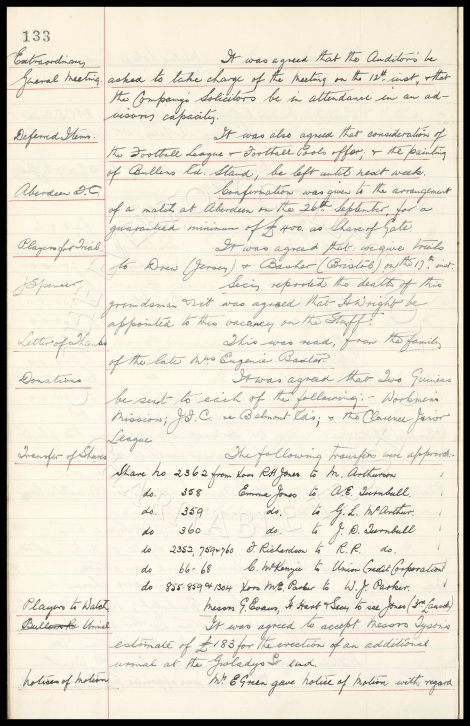 133
Extraordinary General Meeting.
It was agreed that the Auditors be
asked to take charge of the meeting on the 12th inst, & that
the Company's Solicitors be in attendance in an ad-
visory capacity.
Deferred Items.
It was also agreed that consideration of
the Football League & Football Pools offer, & the painting
of Bullens Rd. Stand, be left until next week.
Aberdeen F.C.
Confirmation was given to the arrangement
of a match at Aberdeen on the 26th September, for a
guaranteed minimum of £400. as Share of Gate.
Players for Trial.
It was agreed that we give trials
to Drew (Jersey) & (Bristol) on the 17th inst.
J Spencer.
Secy. reported the death of this
groundsman & it was agreed that H Wright be
appointed to this vacancy on the Staff.
Letter of Thanks
This was read, from the family
of the late Mrs Eugenie Baxter.
Donations
It was agreed that Two Guineas
be sent to each of the following:- Workmen's
Mission; J.I.C. re Belmont Rd; & the Clarence Junior
League
Transfer of Shares
The following transfers were approved:-
Share No 2362 from Xors R H Jones to M. Arthurson
do. 358 Emma Jones to A.E. Turnbull.
do. 359 do. to G. L. McArthur.
do 360 do. to J. D. Turnbull
do 2352, 759 & 760 F. Richardson to R.R. do.
do 66-68 C. McKenzie to Union Credit Corporation
do 855. 859 & 1304 Xors M.E. Parker to W.J. Parker.
Players to Watch
Messrs G. Evans, H Hart & Secy to see Jones ( )
Urinal
It was agreed to accept Messrs Tysons
estimate of £183 for the erection of an additional
urinal at the Gwladys St end.
Notices of Motion
Mr E Green gave notice of motion with regard